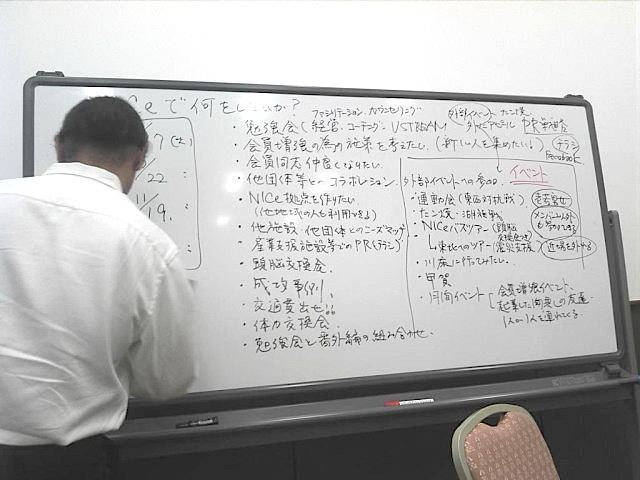 ceで何をしたいか？
ファシリテーション、カウンセリング
・勉強会(経営、コーチング、USTREAM
・会員増強の為の施策を考えたい。(新しい人を集めたい!)
・会員同志仲良くなりたい。
・他団体等とのコラボレーション
・NICe拠点を作りたい
(他地域の人も利用できる)
・他施設・他団体とのニーズマップ
・産業支援施設等でのPR(チラシ)
・頭脳交換会
・成功事例
・交通費出せ!!
・体力交換会
・勉強会と番外編の組み合わせ
7(土)
22 :
19. :
外部イベント
PR
チラシ
Facebook
イベント
外部イベントへの参加
・運動会(東西対抗戦)
老若男女
・NICeバスツアー(頭脳交換会つき)
メンバー以外も参加できる
↳東北へのツアー(震災支援)
・川床に行ってみたい
・甲賀
・月間イベント
会員増強イベント、
起業した同志の友達
1人が1人を連れてくる